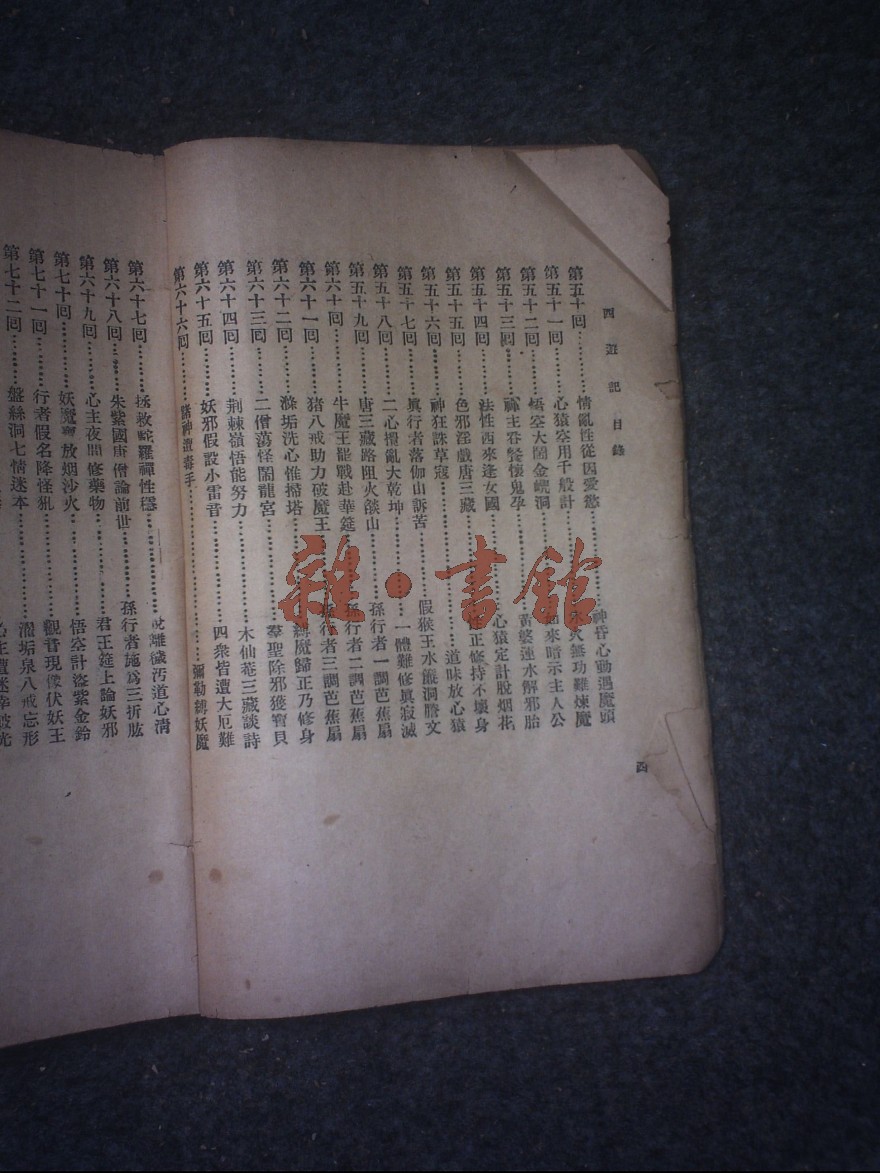 西遊記目錄
四
第五十回…………情亂性從因愛慾…………神昏心動遇魔頭
第五十一回…………心猿空用千般計…………水火無功難煉魔
第五十二回…………悟空大鬧金㠋洞…………如來暗示主人公
第五十三回…………禪主吞餐懷鬼孕…………黃婆運水解邪胎
第五十四回…………法性西來逢女國…………心猿定計脫烟花
第五十五回…………色邪淫戲唐三藏…………性正修持不壞身
第五十六回…………神狂誅草寇…………道昧放心猿
第五十七回…………眞行者落伽山訴苦…………假猴王水簾洞謄文
第五十八回…………二心攪亂大乾坤…………一體難修眞寂滅
第五十九回…………唐三藏路阻火燄山…………孫行者一調芭蕉扇
第六十回…………牛魔王罷戰赴華筵…………孫行者二調芭蕉扇
第六十一回…………猪八戒助力破魔王…………孫行者三調芭蕉扇
第六十二回…………滌垢洗心惟掃塔…………縛魔歸正乃修身
第六十三回…………二僧蕩怪鬧龍宮…………羣聖除邪獲寶貝
第六十四回…………荆棘嶺悟能努力…………木仙菴三藏談詩
第六十五回…………妖邪假設小雷音…………四衆皆遭大厄難
第六十六回…………諸神遭毒手…………彌勒縛妖魔
第六十七回…………拯救駝羅禪性穩…………脫離穢汚道心淸
第六十八回…………朱紫國唐僧論前世…………孫行者施爲三折肱
第六十九回…………心主夜間修藥物…………君王筵上論妖邪
第七十回…………妖魔寶放烟沙火…………悟空計盜紫金鈴
第七十一回…………行者假名降怪犼…………觀音現像伏妖王
第七十二回…………盤絲洞七情迷本…………濯垢泉八戒忘形
雜·書館